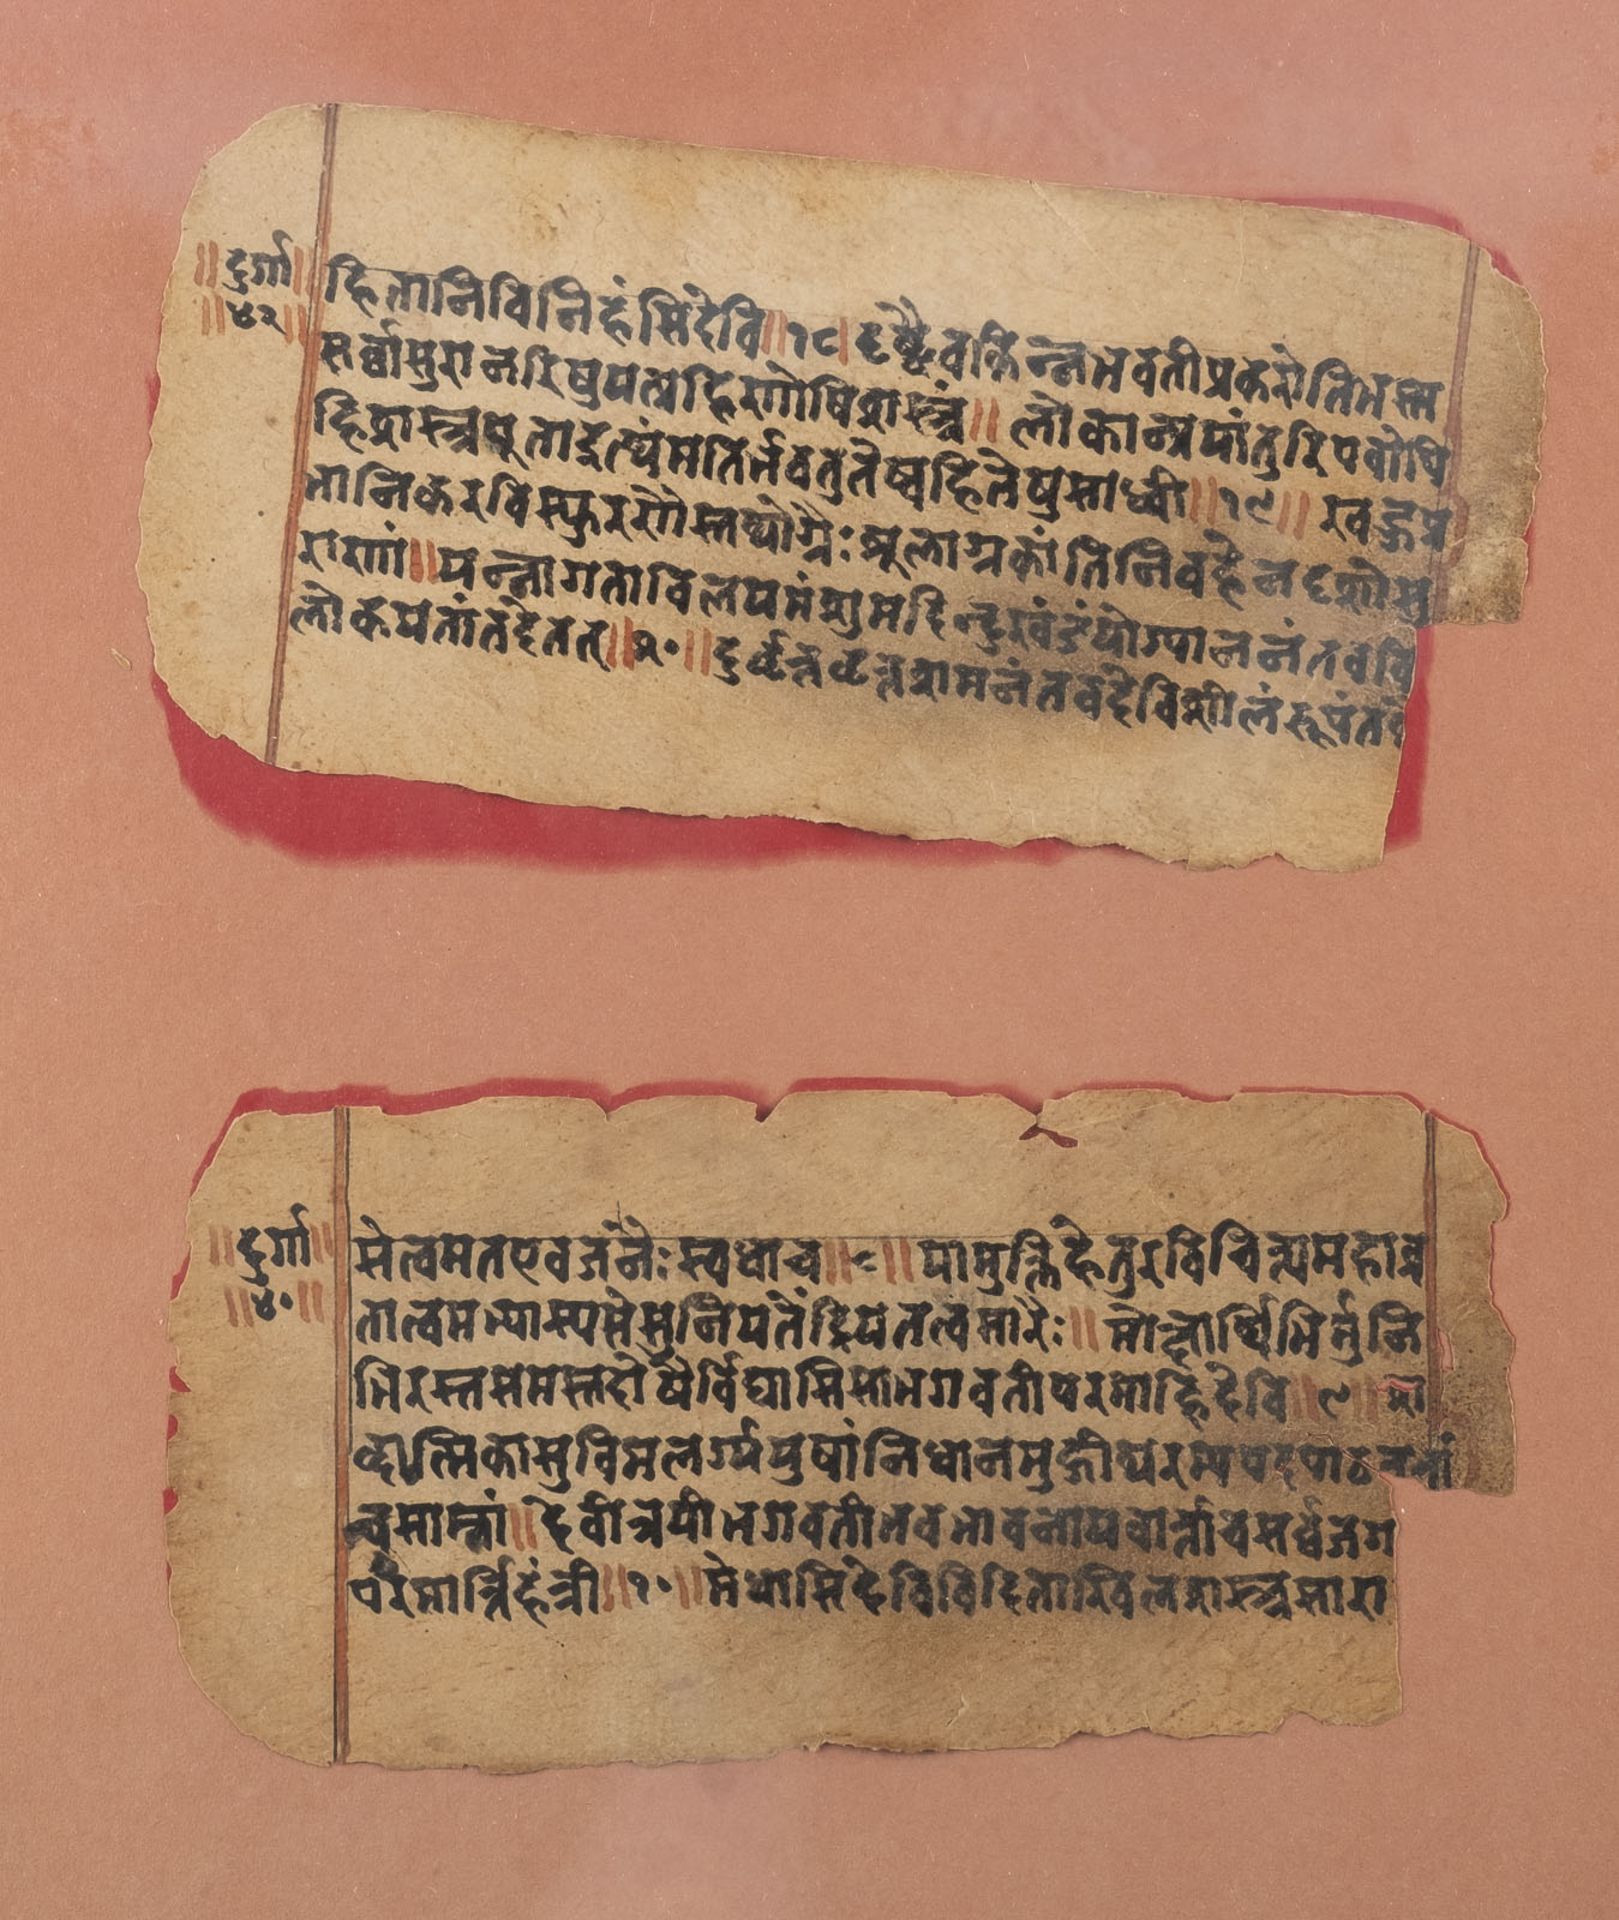 ॥दुर्गा॥
॥४२॥
हितानिविनिहंसिदेवि॥१८॥दृष्ट्वैवकिंन्नभवतीप्रकरोतिभस्म
सर्व्वासुरानरिषुयत्प्रहिणोषिशस्त्रं॥लोकान्प्रयांतुरिपवोपि
हिशस्त्रपूताइत्थंमतिर्भवतुतेष्वहितेषुसाध्वी॥१९॥खड्गप्र
भानिकरविस्फुरणैस्तथोग्रैःशूलाग्रकांतिनिवहेनदृशोसु
राणां॥यन्नागताविलयमंशुमदिन्दुखंडंयोग्याननंतववि
लोकयतांतदेतत्॥२०॥दुर्वृत्तवृत्तशमनंतवदेविशीलंरूपंतथै
॥दुर्गा॥
॥४०॥
सेत्वमतएवजनैःस्वधाच॥८॥यामुक्तिहेतुरविचिन्त्यमहाव्र
तात्वमभ्यास्यसेसुनियतेंद्रियतत्वसारैः॥मोक्षार्थिभिर्मुनि
भिरस्तसमस्तदोषैर्विद्यासिसाभगवतीपरमाहिदेवि॥९॥श
व्दात्मिकासुविमलर्ग्ययुषांनिधानमुद्गीथरम्यपदपाठवतां
चसाम्नां॥देवीत्रयीभगवतीभवभावनायवार्त्ताचसर्व्वजग
तांपरमार्त्तिहंत्री॥१०॥मेधासिदेविविदिताखिलशास्त्रसारा